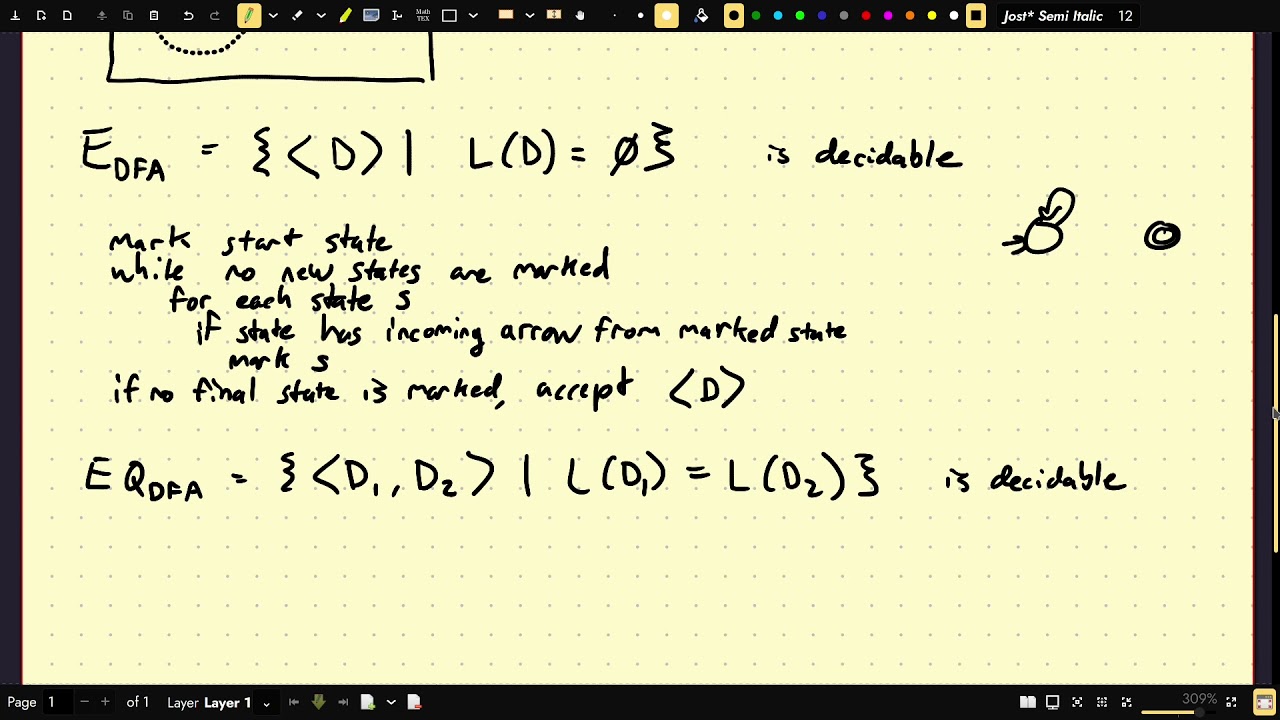 Math
TEX
Jost* Semi Italic 12
E_DFA = {<D> | L(D) = ∅} is decidable
mark start state
while no new states are marked
for each state s
if state has incoming arrow from marked state
mark s
if no final state is marked, accept <D>
EQ_DFA = {<D₁, D₂> | L(D₁) = L(D₂)} is decidable
Page 1 of 1 Layer Layer 1 309%